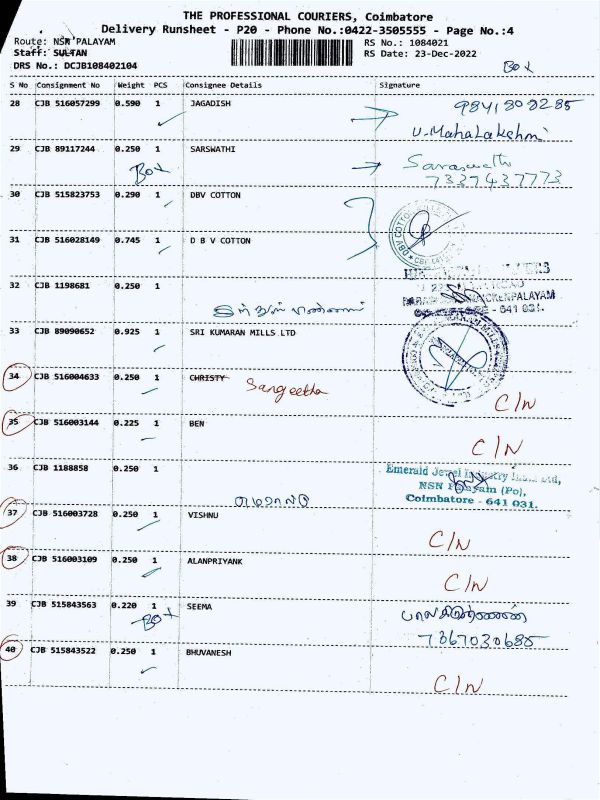 THE PROFESSIONAL COURIERS, Coimbatore
Delivery Runsheet - P20 - Phone No.:0422-3505555 - Page No.:4
Route: NSN PALAYAM
RS No.: 1084021
Staff: SULTAN
RS Date: 23-Dec-2022
DRS No.: DCJB108402104
Box
S No Consignment No Weight PCS Consignee Details Signature
28 CJB 516057299 0.590 1 JAGADISH
U.Mahalakshmi
29 CJB 89117244 0.250 1 SARSWATHI
Box
Saraswathi
7337437773
30 CJB 515823753 0.290 1 DBV COTTON
31 CJB 516028149 0.745 1 D B V COTTON
32 CJB 1198681 0.250 1
- 641 031.
33 CJB 89090652 0.925 1 SRI KUMARAN MILLS LTD
34 CJB 516004633 0.250 1 CHRISTY Sangeetha
C/N
35 CJB 516003144 0.225 1 BEN
C/N
36 CJB 1188858 0.250 1
எமரால்டு
Emerald Jewel Industry India Ltd,
NSN Palayam (Po),
Coimbatore - 641 031.
37 CJB 516003728 0.250 1 VISHNU
C/N
38 CJB 516003109 0.250 1 ALANPRIYANK
C/N
39 CJB 515843563 0.220 1 SEEMA
Box
7367030685
40 CJB 515843522 0.250 1 BHUVANESH
C/N